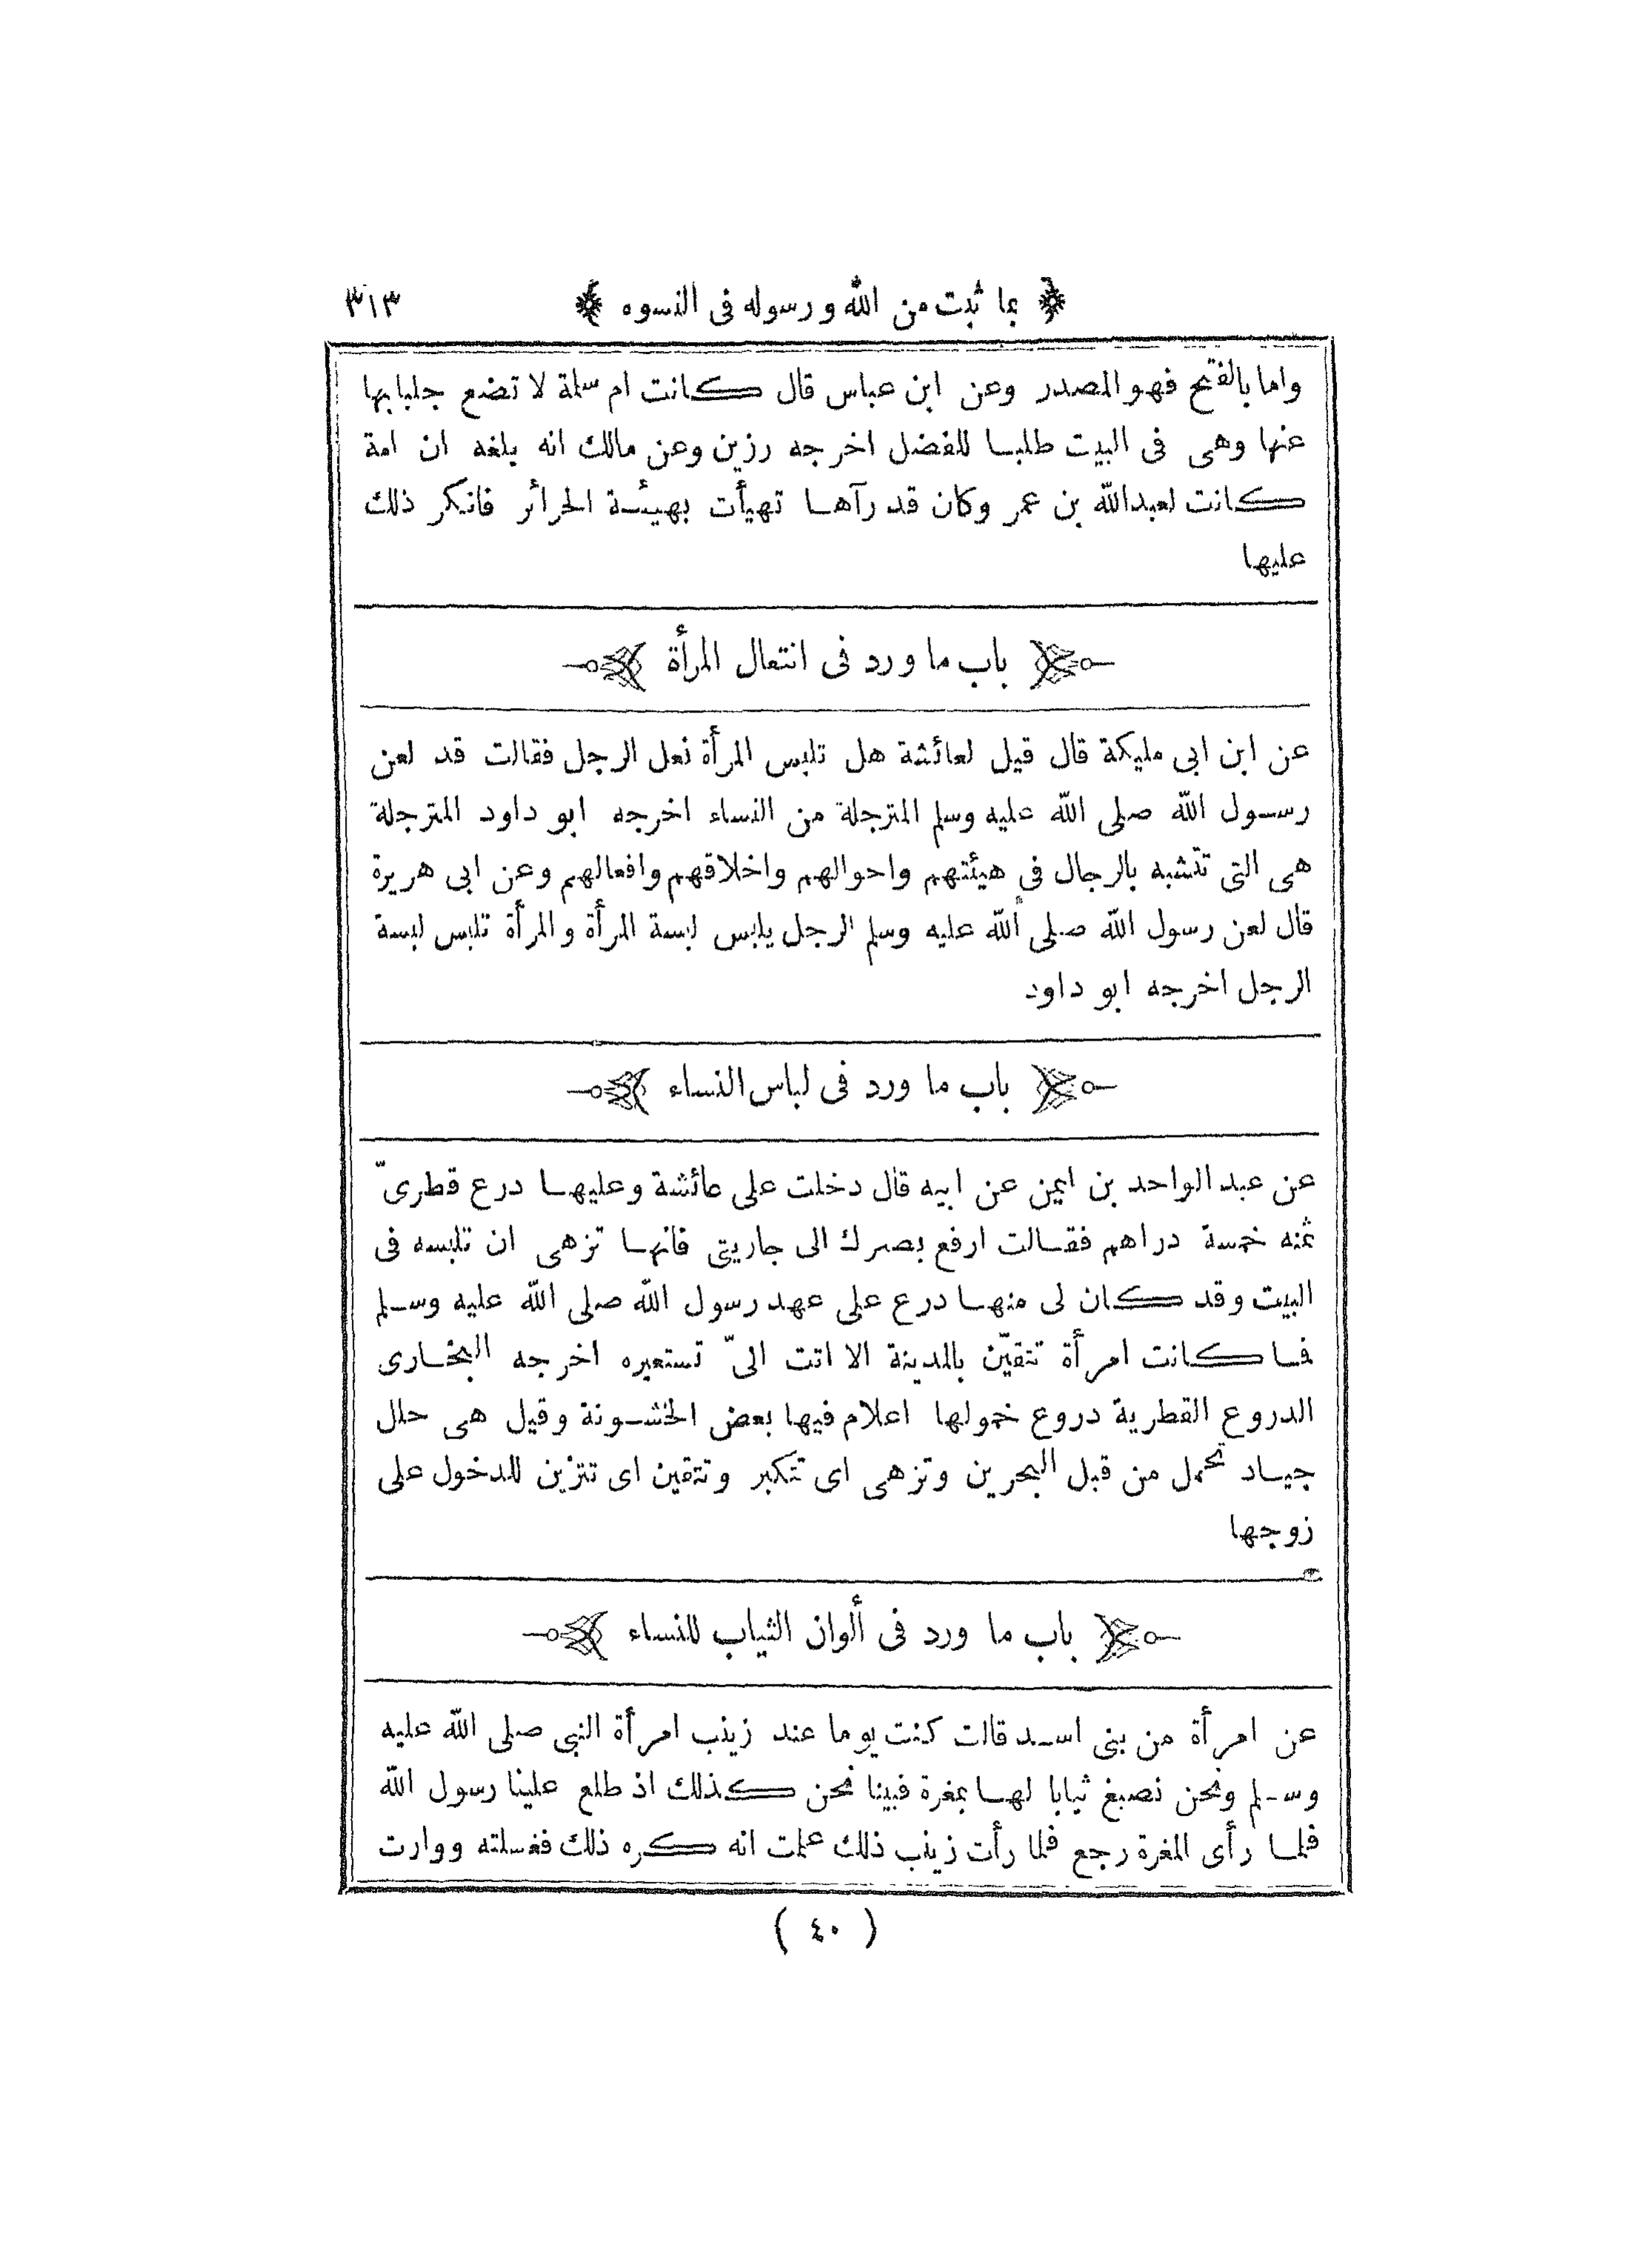 ﴿ بما ثبت من الله ورسوله فى النسوه ﴾ ٣١٣
واما بالفتح فهو المصدر وعن ابن عباس قال كانت ام سلمة لا تضع جلبابها
عنها وهى فى البيت طلبا للفضل اخرجه رزين وعن مالك انه بلغه ان امة
كانت لعبدالله بن عمر وكان قد رآها تهيأت بهيئة الحرائر فانكر ذلك
عليها
باب ما ورد فى انتعال المرأة
عن ابن ابى مليكة قال قيل لعائشة هل تلبس المرأة نعل الرجل فقالت قد لعن
رسول الله صلى الله عليه وسلم المترجلة من النساء اخرجه ابو داود المترجلة
هى التى تتشبه بالرجال فى هيئتهم واحوالهم واخلاقهم وافعالهم وعن ابى هريرة
قال لعن رسول الله صلى الله عليه وسلم الرجل يلبس لبسة المرأة والمرأة تلبس لبسة
الرجل اخرجه ابو داود
باب ما ورد فى لباس النساء
عن عبد الواحد بن ايمن عن ابيه قال دخلت على عائشة وعليها درع قطرىّ
ثمنه خمسة دراهم فقالت ارفع بصرك الى جاريتى فانها تزهى ان تلبسه فى
البيت وقد كان لى منها درع على عهد رسول الله صلى الله عليه وسلم
فما كانت امرأة تتقيّن بالمدينة الا اتت الىّ تستعيره اخرجه البخارى
الدروع القطرية دروع خمولها اعلام فيها بعض الخشونة وقيل هى حلل
جياد تحمل من قبل البحرين وتزهى اى تتكبر وتتقين اى تتزين للدخول على
زوجها
باب ما ورد فى ألوان الثياب للنساء
عن امرأة من بنى اسد قالت كنت يوما عند زينب امرأة النبى صلى الله عليه
وسلم ونحن نصبغ ثيابا لها بمغرة فبينا نحن كذلك اذ طلع علينا رسول الله
فلما رأى المغرة رجع فلما رأت زينب ذلك علمت انه كره ذلك فغسلته ووارت
( ٤٠ )